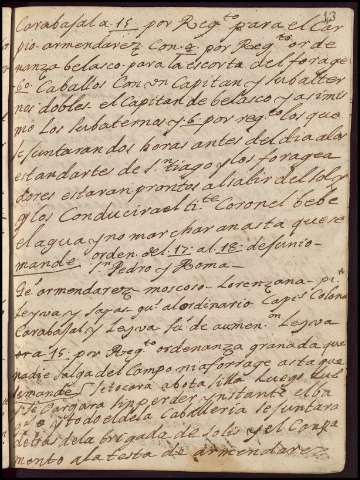 33
Carabajal a 15 por Regto para el Car
pio armendarez Con 2 por Regto orde
nanza belasco para la escorta del forage
60 Caballos Con Un Capitan y subalter
nos dobles. el Capitan de belasco y asimis
mo Los subalternos y 6 por regto los que
se juntaran dos horas antes del dia a los
estandartes de sn tiago y los foragea
dores estaran prontos al salir del sol y
los Conducira el tite Coronel bebe
el agua y no marcharan asta que se
mande orden del 17 al 18 de junio
sn Pedro y Roma
armendarez moscoso Lorenzana
Leyua y sajas al ordinario Capes Colona
Carabajal y Leyua de aumen on Leyua
ora 15 por Regto ordenanza granada que
nadie salga del Campo nia forrage asta que
semande si se toca a botasilla Luego
se Cargara sin perder ynstante el ba
y todo el de la Caballeria se juntara
detras de la brigada de solis y el Campa
mento a la testa de armendarez